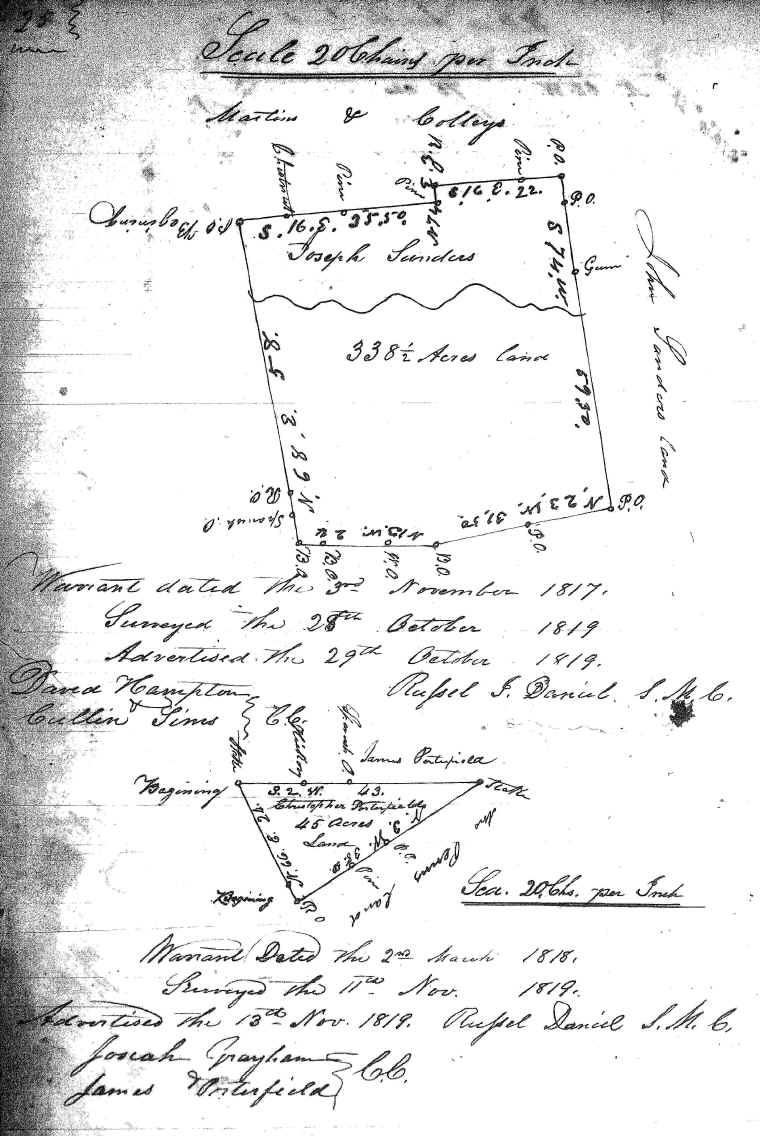 25
Scale 20 Chains per Inch
Martins & Colleys
Chestnut
Pine
Pine
R.O.
Pine
P.O.
Beginning P.O.
S. 16. E. 35.50
4 W
S. 16. E. 22.
P.O.
Joseph Sanders
S 74. W. 59.50.
Gum
John Sanders Land
338 ½ Acres Land
N. 68. E. 58.
R.O.
Spanish O.
B.O.
B.O.
N 13. W. 24
W.O.
B.O.
N. 23. W. 31.50.
P.O.
P.O.
Warrant dated the 3rd November 1817.
Surveyed the 28th October 1819
Advertised the 29th October 1819.
David Hampton
& Cullin Sims } C.C.
Russel J. Daniel. S. M. C.
Stake
Hickory
Spanish O.
James Porterfield
Begining
S. 2. W. 43.
Stake
Christopher Porterfields
45 Acres
Land
N. 66. E. 24.
N. 3. W.
Pine
Penns Land
Begining
P.O
Sca. 20 Chs. per Inch
Warrant Dated the 2nd March 1818.
Surveyed the 11th Nov. 1819.
Advertised the 13th Nov. 1819. Russel Daniel S. M. C.
Josiah Grayham
& James Porterfield } C.C.